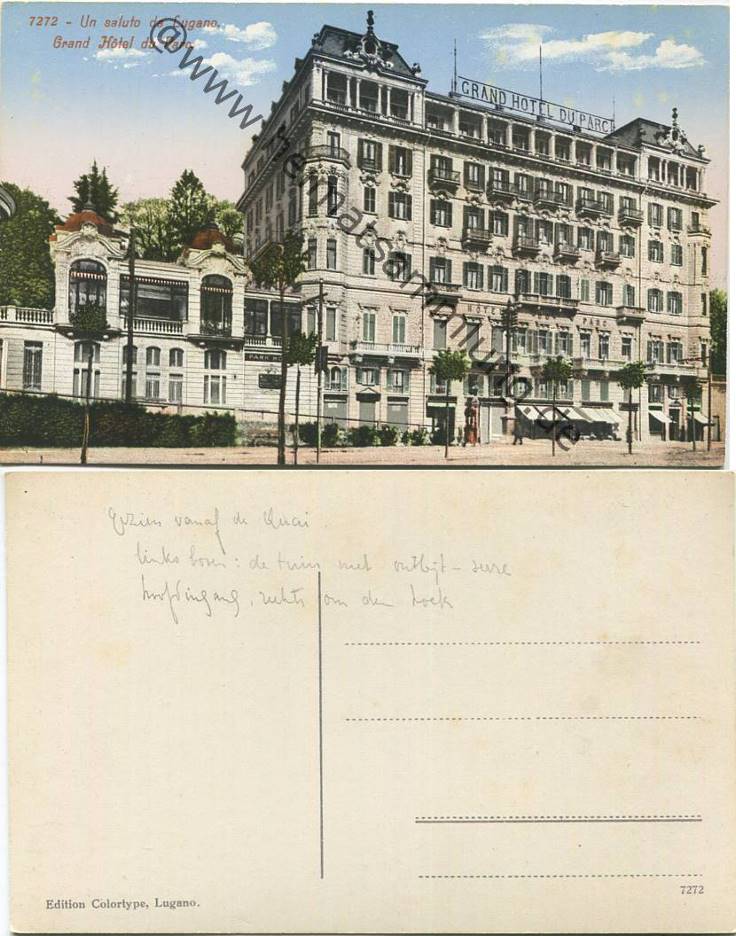 7272 - Un saluto da Lugano.
Grand Hôtel du Parc.
@www.heimatsammlung.de
GRAND HOTEL DU PARC
HOTEL PARC
PARK
Gezien vanaf de Quai
links boven: de tuin met ontbijt-serre
hoofdingang, rechts om den hoek
Edition Colortype, Lugano.
7272